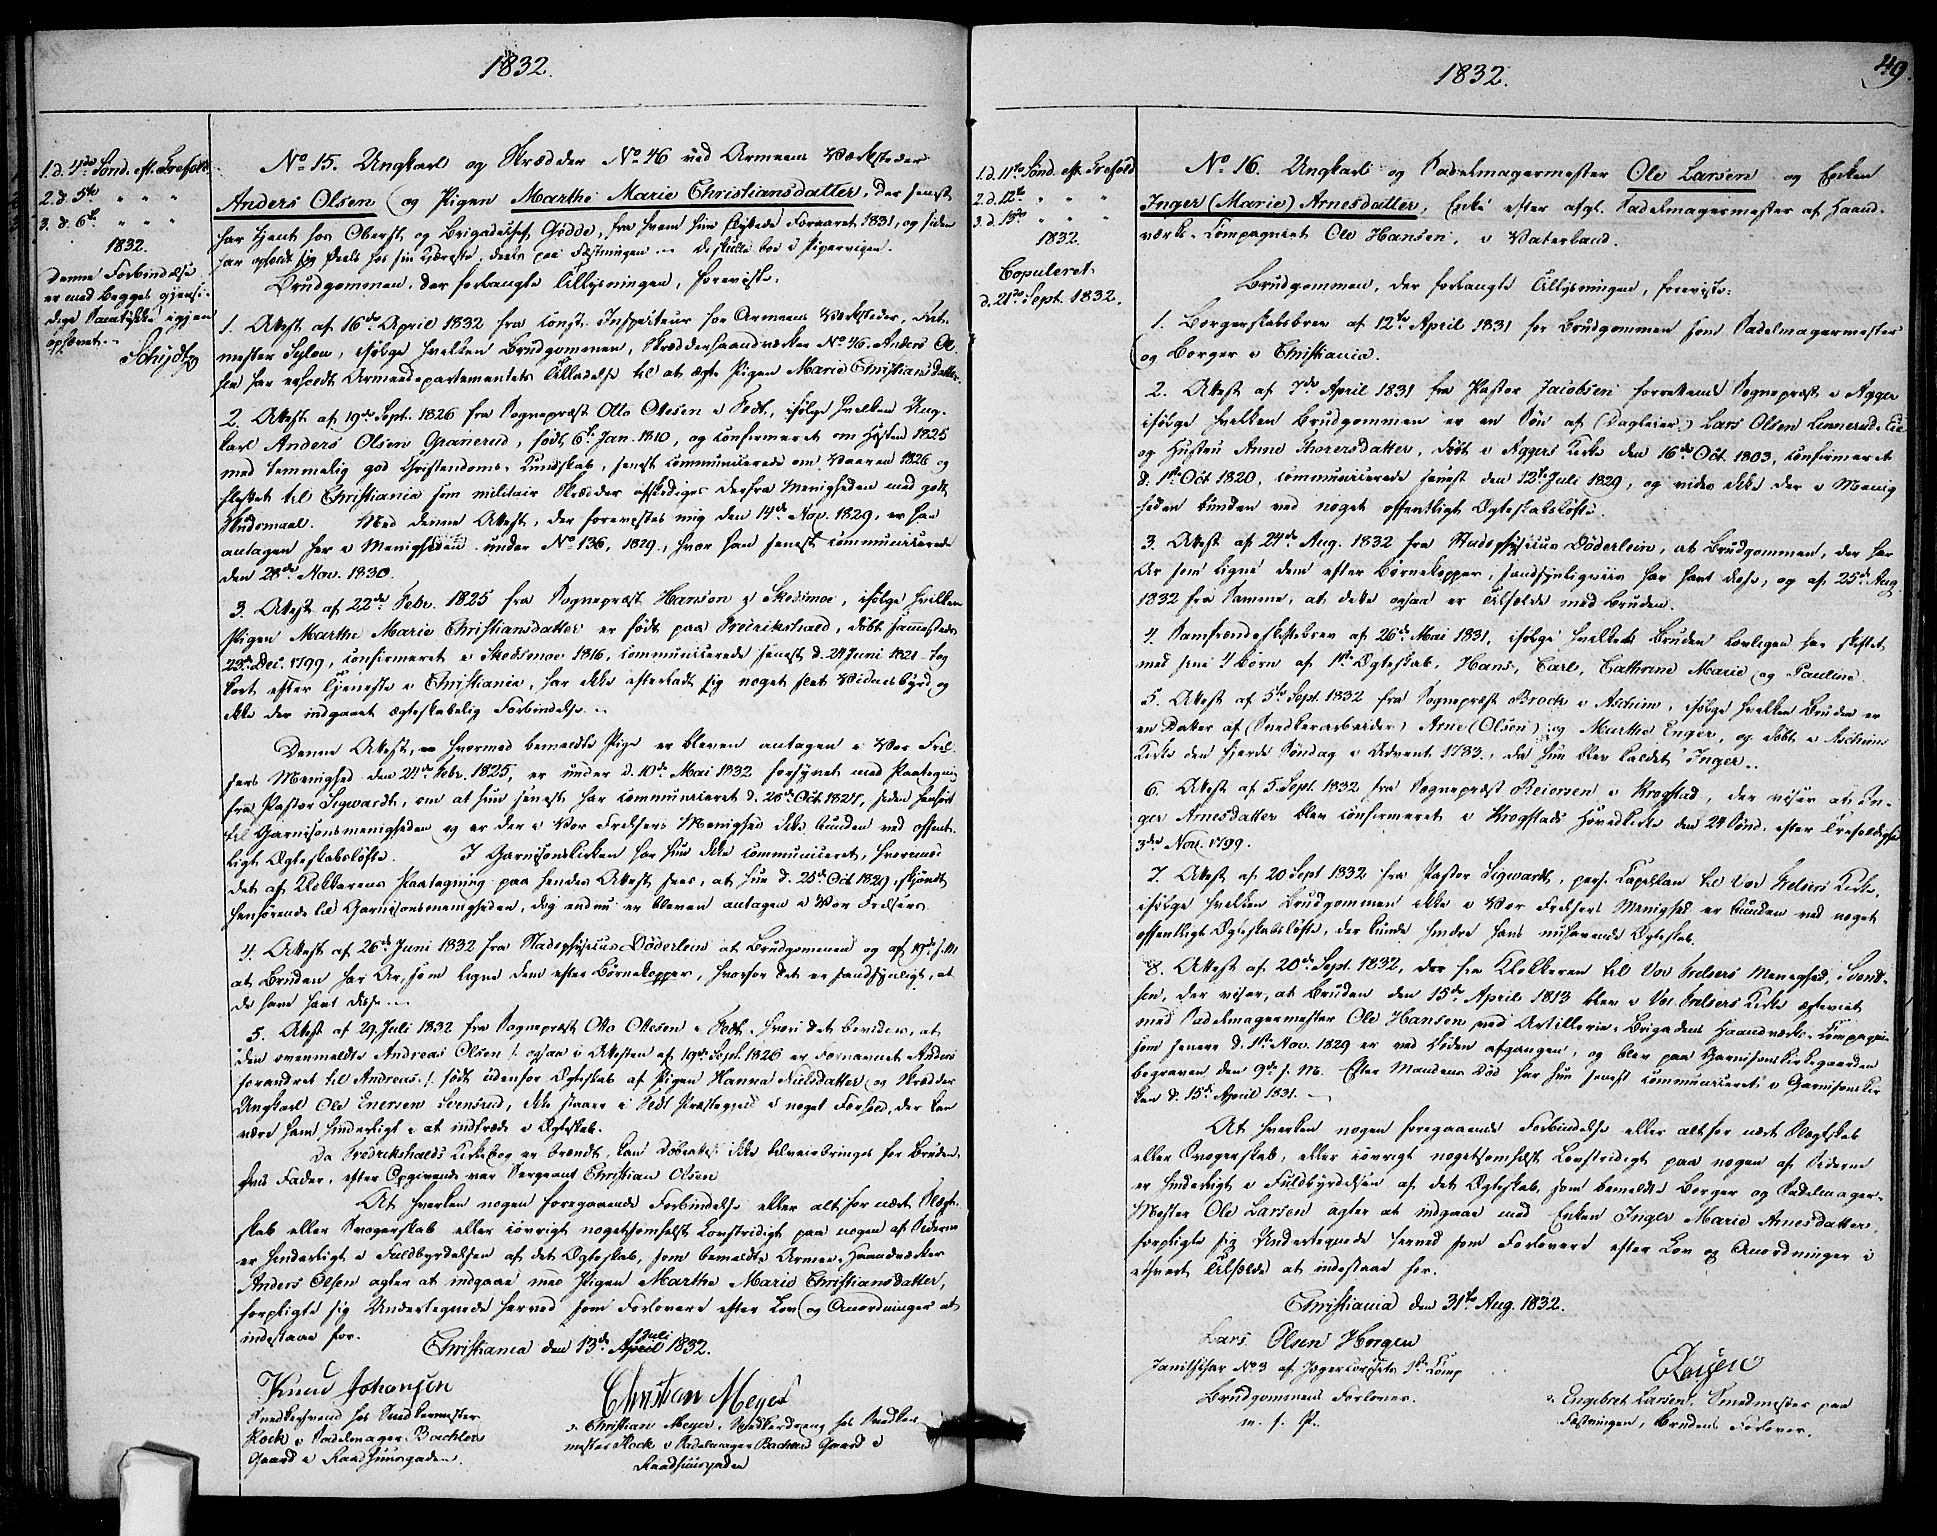 1832.
1. d. 4de Sönd. eft. Trefold.
2. d. 5te " " "
3. d. 6te " " "
1832.
Denne Forbindelse
er med Begges gjensi-
dige Samtykke igjen
ophævet.
Schydtz
No 15. Ungkarl og Skrædder No 46 ved Armeens Værksteder
Anders Olsen og Pigen Marthe Marie Christiansdatter, der senest
har tjent hos Oberst og Brigadechef Gödde, fra hvem hun flyttede Foraaret 1831, og siden
har opholdt sig deels hos sin Kjæreste, deels paa Fæstningen De skulle boe i Pipervigen.
Brudgommen, der forlangte Tillysningen, foreviste:
1. Attest af 16de April 1832 fra const. Inspecteur for Armeens Værksteder, Rit-
mester Sylow, ifølge hvilken Brudgommen, Skrædderhaandværker No 46. Anders Ol-
sen har erholdt Armeedepartementets Tilladelse til at ægte Pigen Marie Christiansdatter.
2. Attest af 19de Sept. 1826 fra Sognepræst Otto Ottesen i Fedt, ifølge hvilken Ung-
karl Anders Olsen Granerud, født 6te Jan. 1810, og confirmeret om Høsten 1825
med temmelig god Christendoms-Kundskab, senest communicerede om Vaaren 1826 og
flyttet til Christiania som militair Skrædder afskediges derfra Menigheden med godt
Skudsmaal. Med denne Attest, der forevistes mig den 14de Nov. 1829, er han
antagen her i Menigheden under No 136, 1829, hvor han senest communicerede
den 28de Nov. 1830.
3. Attest af 22de Febr. 1825 fra Sognepræst Hanson i Skedsmoe, ifølge hvilken
Pigen Marthe Marie Christiansdatter er født paa Fredrikshald, døbt sammesteds
23de Dec. 1799, confirmeret i Skedsmoe 1816, communicerede senest d. 24 Juni 1821 tog
bort efter Tjeneste i Christiania, har ikke efterladt sig noget slet Vidnesbyrd og
ikke der indgaaet ægteskabelig Forbindelse.
Denne Attest, hvormed bemeldte Pige er bleven antagen i Vor Frel-
sers Menighed den 24de Febr. 1825, er under d. 10de Mai 1832 forsynet med Paategning
fra Pastor Sigwardt, om at hun senest har communiceret d. 28de Oct 1827, siden henført
til Garnisonsmenigheden og er der i Vor Frelsers Menighed ikke bunden ved offent-
ligt Ægteskabsløfte. I Garnisonskirken har hun ikke communiceret, hvorimod
det af Klokkerens Paategning paa hendes Attest sees, at hun d. 25de Oct 1829, skjøndt
henhørende til Garnisonsmenigheden, dog endnu er bleven antagen i Vor Frelsers
4. Attest af 26de Juni 1832 fra Stadsphysicus Döderlein at Brudgommen og af 19de s. M.
at Bruden har Ar, som ligne dem efter Børnekopper, hvorfor det er sandsynligt, at
de have havt disse.
5. Attest af 29. Juli 1832 fra Sognepræst Otto Ottesen i Fedt, hvori det bevidnes, at
den ovenmeldte Andreas Olsen /: ogsaa i Attesten af 19de Sept. 1826 er Fornavnet Anders
forandret til Andreas :/ født udenfor Ægteskab af Pigen Hanna Nielsdatter og Skrædder
Ungkarl Ole Enersen Svensrud, ikke staaer i Fedt Præstegjeld i noget Forhold, der kan
være ham hinderligt i at indtræde i Ægteskab.
Da Fredrikshalds Kirkebog er brændt, kan Døbeattest ikke tilveiebringes for Bruden,
hvis Fader, efter Opgivende var Sergeant Christian Olsen
At hverken nogen foregaaende Forbindelse eller alt for nært Slægt-
skab eller Svogerskab eller iövrigt nogetsomhelst Lovstridigt paa nogen af Siderne
er hinderligt i Fuldbyrdelsen af det Ægteskab, som bemeldte Armee-Haandværker
Anders Olsen agter at indgaae med Pigen Marthe Marie Christiansdatter,
forpligte sig Undertegnede herved som Forlovere efter Lov og Anordninger at
indestaae for.
Christiania den 13de April Juli 1832.
Knud Johansen
Snedkersvend hos Snedkermester
Kock i Sadelmager Bachlers
Gaard i Raadhuusgaden.
Christian Meyer
Christian Meyer, Snedkerdreng hos Snedker-
mester Kock i Sadelmager Bachers Gaard i
Raadhuusgaden
1832.
49.
1. d. 11te Sönd. eft. Trefold.
2. d. 12te " " "
3. d. 13de " " "
1832.
Copuleret
d. 21de Sept. 1832.
No 16. Ungkarl og Sadelmagermester Ole Larsen og Enken
Inger (Marie) Arnesdatter, Enke efter afgl. Sadelmagermester af Haand-
værks-Compagniet Ole Hansen, i Vaterland.
Brudgommen, der forlangte Tillysningen, foreviste:
1. Borgerskabsbrev af 12te April 1831 for Brudgommen som Sadelmagermester
og Borger i Christiania.
2. Attest af 7de April 1831 fra Pastor Jacobsen forrettende Sognepræst i Agger
ifølge hvilken Brudgommen er en Søn af (Dagleier) Lars Olsen Linnerud-Eie
og Hustru Anne Thorersdatter, døbt i Aggers Kirke den 16de Oct. 1803, confirmeret
d. 1ste Oct 1820, communicerede senest den 12te Juli 1829, og vides ikke der i Menig-
heden bunden ved noget offentligt Ægteskabsløfte.
3. Attest af 24de Aug. 1832 fra Stadsphysicus Döderlein, at Brudgommen, der har
Ar som ligne dem efter Børnekopper, sandsynligviis har havt disse, og af 25de Aug
1832 fra Samme, at dette ogsaa er Tilfældet med Bruden.
4. Samfrændeskiftebrev af 26de Mai 1831, ifølge hvilket Bruden lovligen har skiftet
med sine 4 Børn af 1ste Ægteskab, Hans, Carl, Cathrine Marie og Pauline.
5. Attest af 5te Sept. 1832 fra Sognepræst Brock i Aschim, ifølge hvilken Bruden er
en Datter af (Snedkerarbeider) Arne (Olsen) og Marthe Enger, og døbt i Aschims
Kirke den fjerde Søndag i Advent 1783, da hun blev kaldet "Inger".
6. Attest af 5. Sept. 1832 fra Sognepræst Reiersen i Krogstad, der viser at In-
ger Arnesdatter blev confirmeret i Krogstads Hovedkirke den 24 Sönd. efter Trefoldighed
3die Nov. 1799.
7. Attest af 20 Sept 1832 fra Pastor Sigwardt, pers. Kapellan til Vor Frelsers Kirke,
ifølge hvilken Brudgommen ikke i Vor Frelsers Menighed er bunden ved noget
offentligt Ægteskabsløfte, der kunde hindre hans nuhavende Ægteskab.
8. Attest af 20de Sept. 1832, der fra Klokkeren til Vor Frelsers Menighed, Svend-
sen, der viser, at Bruden den 15de April 1813 blev i Vor Frelsers Kirke ægteviet
med Sadelmagermester Ole Hansen ved Artillerie-Brigadens Haandværks-Compagnie
som senere d. 1ste Nov. 1829 er ved Døden afgangen, og blev paa Garnisonskirkegaarden
begraven den 9de s. M. Efter Mandens Død har hun senest communiceret i Garnisonskir-
ken d. 15de April 1831.
At hverken nogen foregaaende Forbindelse eller alt for nært Slægtskab
eller Svogerskab, eller iövrigt nogetsomhelst Lovstridigt paa nogen af Siderne
er hinderligt i Fuldbyrdelsen af det Ægteskab, som bemeldte Borger og Sadelmager-
Mester Ole Larsen agter at indgaae med Enken Inger Marie Arnesdatter,
forpligte sig Undertegnede herved som Forlovere efter Lov og Anordninger i
ethvert Tilfælde at indestaae for.
Christiania den 31te Aug. 1832.
Lars Olsen Horgen
Janitschar No 3 af Jægercorpsets 1ste Comp
Brudgommens Forlover.
m. f. P.
Engebret Larsen, Smedmester paa
Fæstningen, Brudens Forlover.